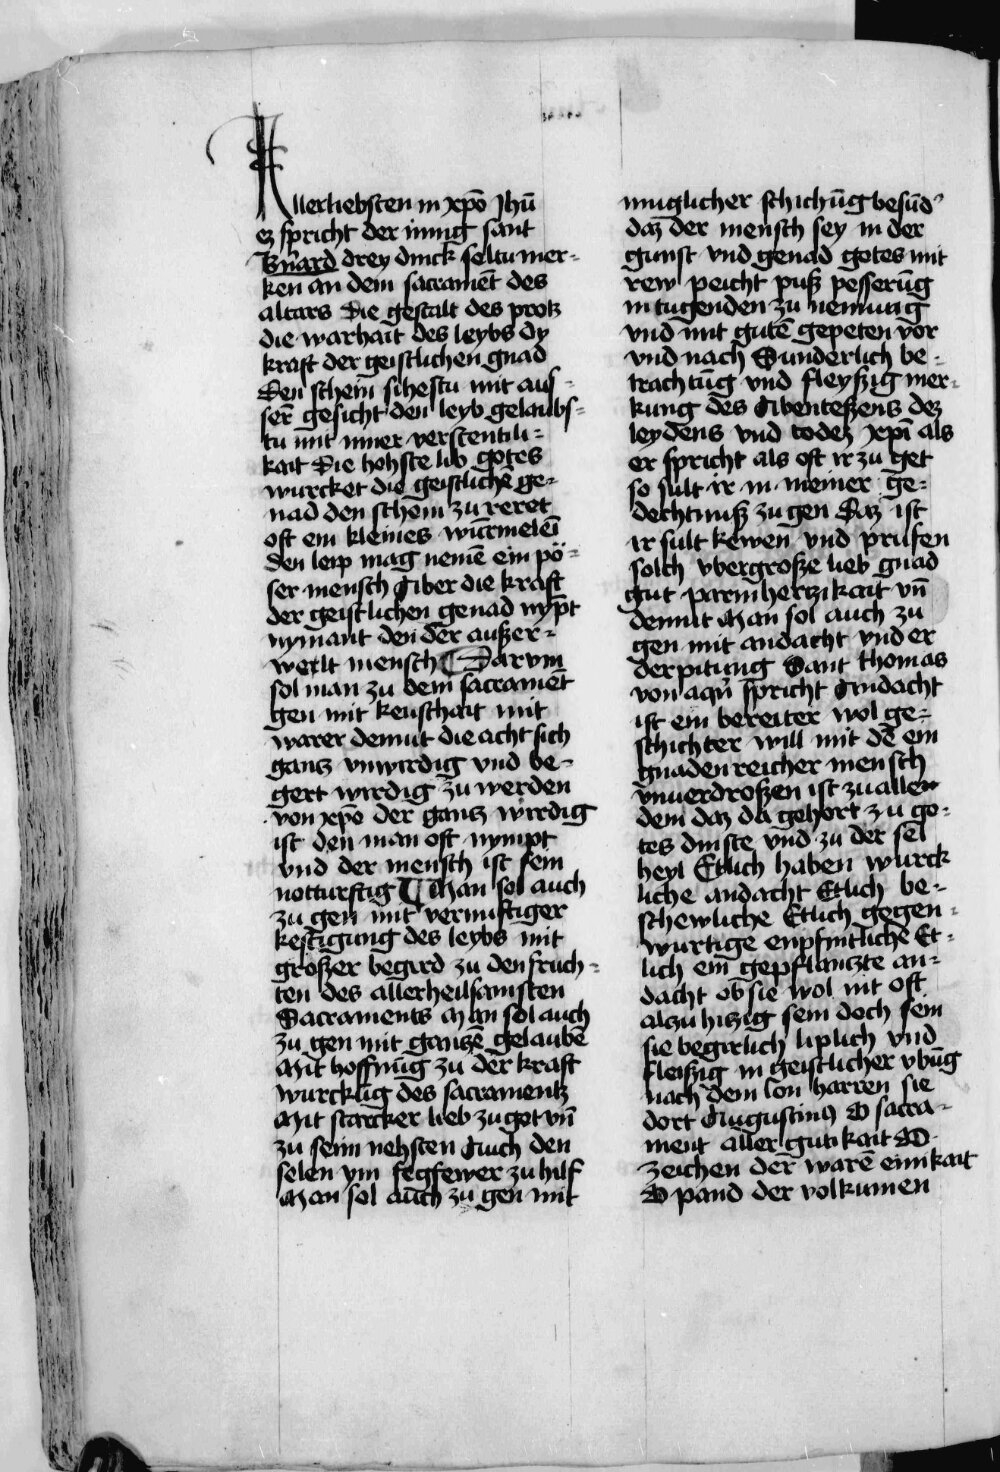 Allerliebsten in xpō Jhū
ez spricht der innig sant
Bn̄ard drey dinck soltu mer-
ken an dem sacramēt des
altars Die gestalt des protz
die warhait des leybs dy
kraft der geistlichen gnad
Den schein sihestu mit aus-
serē gesicht den leyb gelaubs-
tu mit inner verstentili-
kait Die hohste lib gotes
wurcket die geistliche ge-
nad den schein zu reret
oft ein kleines wurmeleī
den leip mag nemē ein pö-
ser mensch Aber die kraft
der geistlichen genad nypt
nymant den der außer-
welt mensch Darvm
sol man zu dem sacramēt
gen mit keuschait mit
warer demut die acht sich
gantz vnwirdig vnd be-
gert wirdig zu werden
von xpō der gantz wirdig
ist den man oft nympt
vnd der mensch ist sein
notturftig Man sol auch
zu gen mit vernuftiger
kestigung des leybs mit
großer begird zu den fruch-
ten des allerheilsamsten
Sacraments Man sol auch
zu gen mit gantzē gelaubē
Mit hoffnūg zu der kraft
wurcklūg des sacramentz
Mit starcker lieb zu got vn̄
zu seim nehsten Auch den
selen ym fegfewer zu hilf
Man sol auch zu gen mit
muglicher schichūg besūd'
daz der mensch sey in der
gunst vnd genad gotes mit
rew peicht puß pesserūg
in tugenden zu nemung
vnd mit gutē gepeten vor
vnd nach Sunderlich be-
trachtūg vnd fleyßig mer-
kung des Abenteßens dez
leydens vnd todez xpī als
er spricht als oft ir zu get
so sult ir in meiner ge-
dechtnuß zu gen Daz ist
ir sult kewen vnd prufen
solch vbergroße lieb gnad
gut parmhertzikait vn̄
demut Man sol auch zu
gen mit andacht vnd er
derpitung Sant thomas
von aqn̄ spricht Andacht
ist ein bereiter wol ge-
schichter will mit dē ein
gnadenreicher mensch
vnuerdroßen ist zu allen
dem daz da gehort zu go-
tes dinste vnd zu der sel
heyl Etlich haben wurck
liche andacht Etlich be-
schewliche Etlich gegen-
wurtige enpfintliche Et-
lich ein gepflantzte an-
dacht ob sie wol nit oft
alzu hitzig sein doch sein
sie begirlich liplich vnd
fleißig in geistlicher vbūg
nach dem lon harren sie
dort Augustinus O sacra-
ment aller gutikait O
zeichen der warē einikait
O pand der volkumen